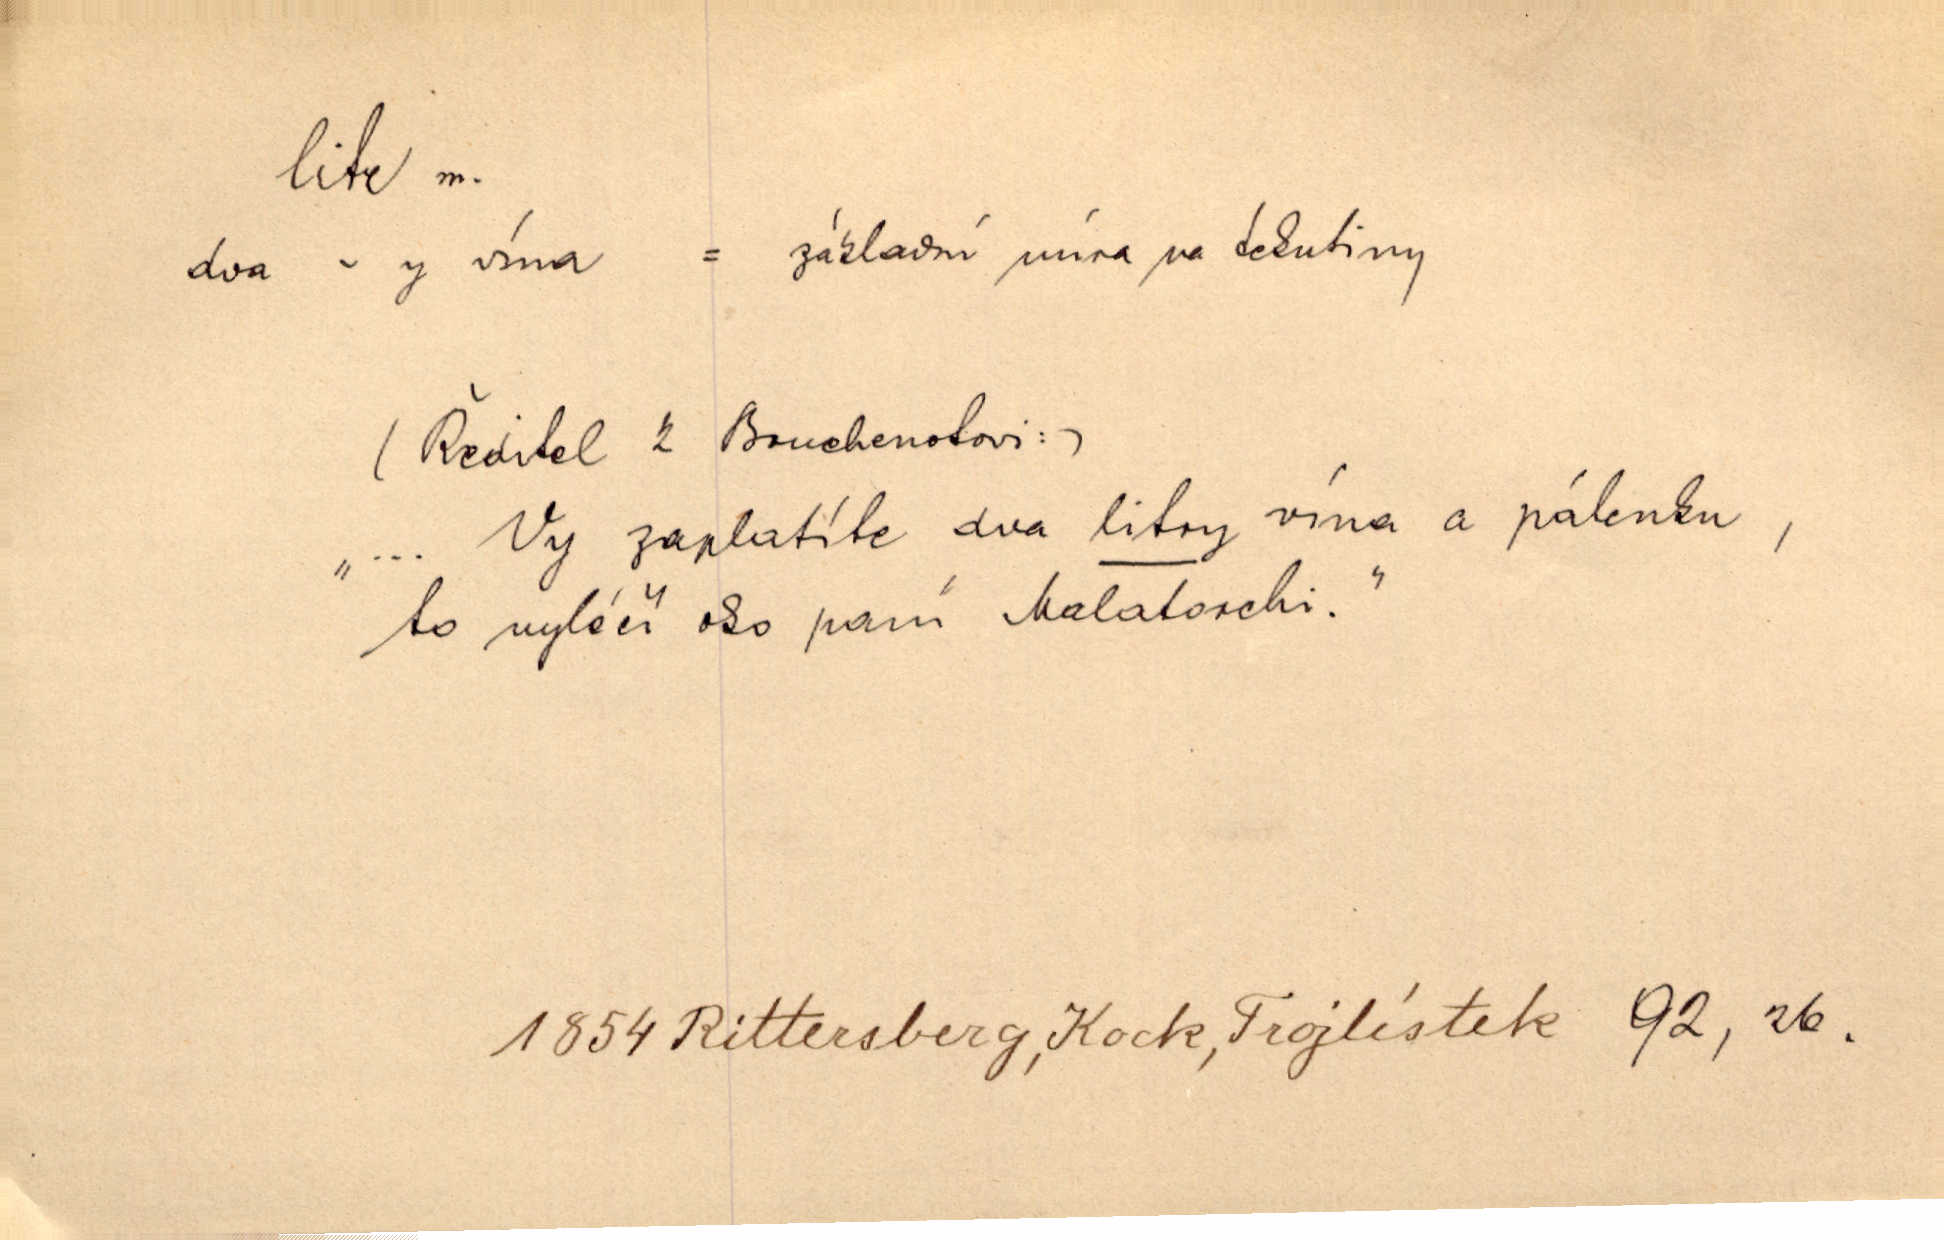 litr m.
dva ~ y vína = základní míra na tekutiny
(Ředitel k Bouchenotovi:)
„... Vy zaplatíte dva litry vína a pálenku,
to vyléčí oko paní Malatorchi.“
1854 Rittersberg, Kock, Trojlístek 92, 26.